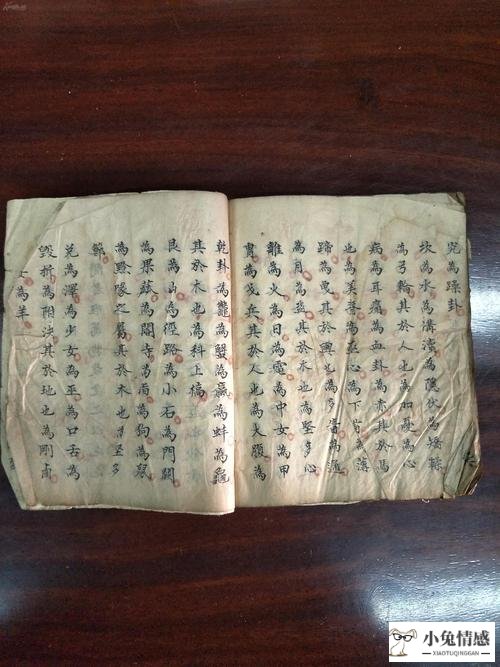 究為躁卦
坎為水為溝瀆為隱伏為矯輮
為弓輪其於人也為加憂為心
病為耳痛為血卦為赤其於馬
也為美脊為亟心為下首為薄
蹄為曳其於輿也為多眚為通
為月為盜其於木也為堅多心
離為火為日為電為中女為甲
冑為戈兵其於人也為大腹為
乾卦為鼈為蟹為蠃為蚌為龜
其於木也為科上槁
艮為山為徑路為小石為門闕
為果蓏為閽寺為指為狗為鼠
為黔喙之屬其於木也為堅多
節
兌為澤為少女為巫為口舌為
毀折為附決其於地也為剛鹵
為羊
小兔情感
XIAOTUQINGGAN